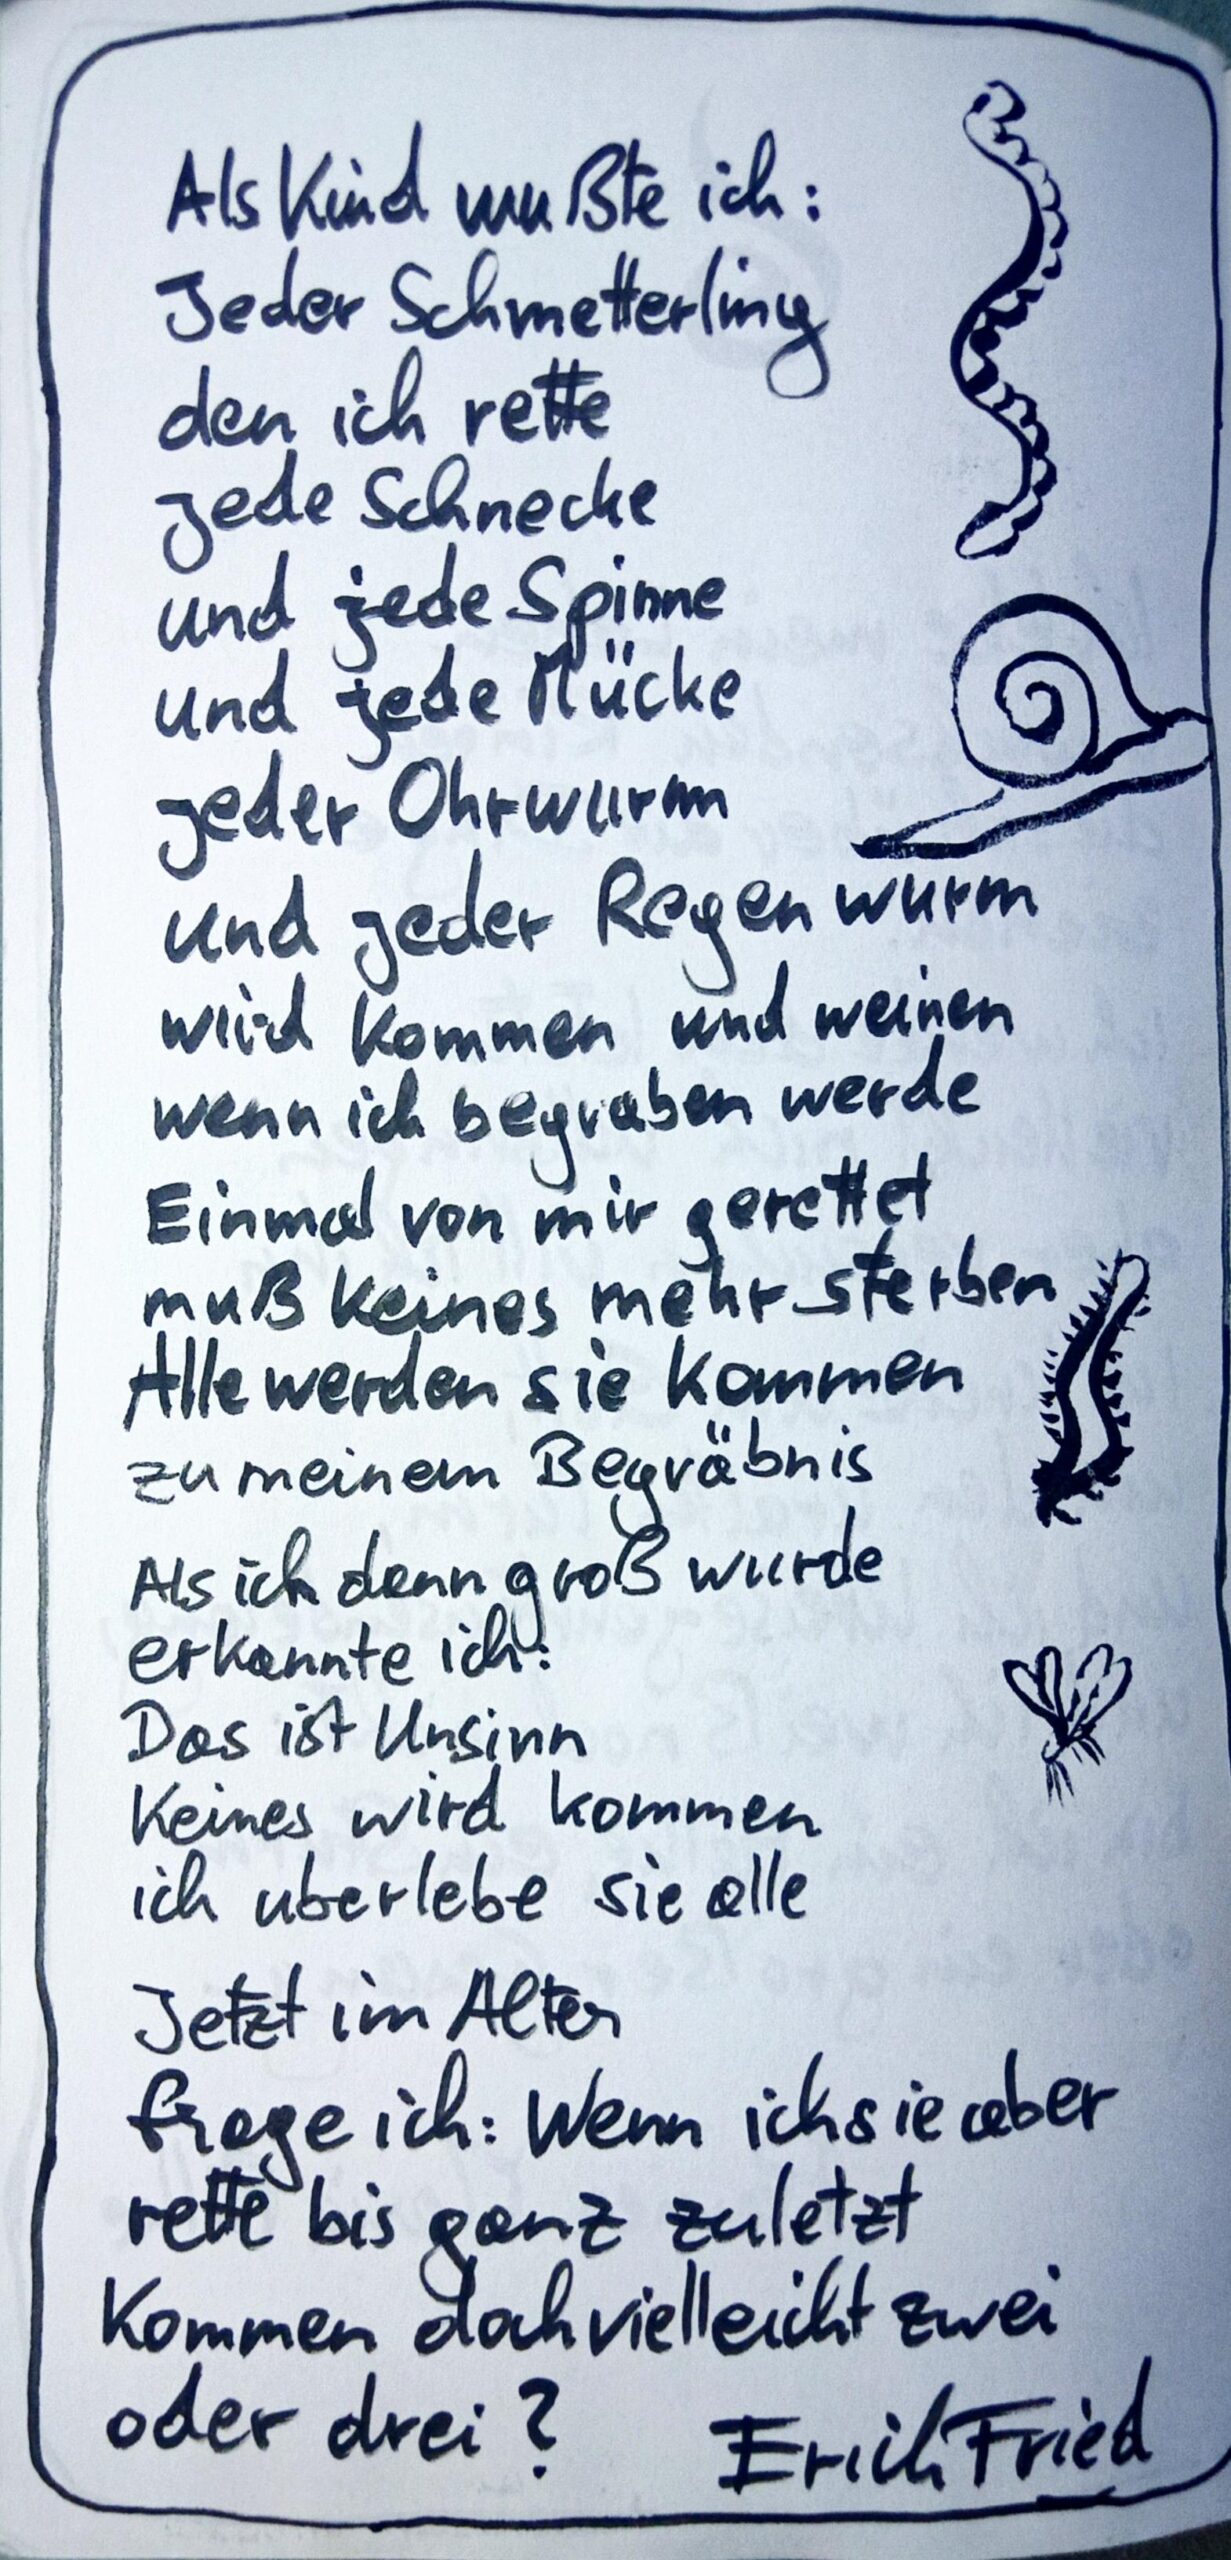 Als Kind mußte ich:
Jeder Schmetterling
den ich rette
jede Schnecke
und jede Spinne
und jede Mücke
jeder Ohrwurm
und jeder Regenwurm
wird kommen und weinen
wenn ich begraben werde
Einmal von mir gerettet
muß keines mehr sterben
Alle werden sie kommen
zu meinem Begräbnis
Als ich dann groß wurde
erkannte ich:
Das ist Unsinn
Keines wird kommen
ich uberlebe sie alle
Jetzt im Alter
frage ich: Wenn ich sie aber
rette bis ganz zuletzt
Kommen doch vielleicht zwei
oder drei?
Erich Fried